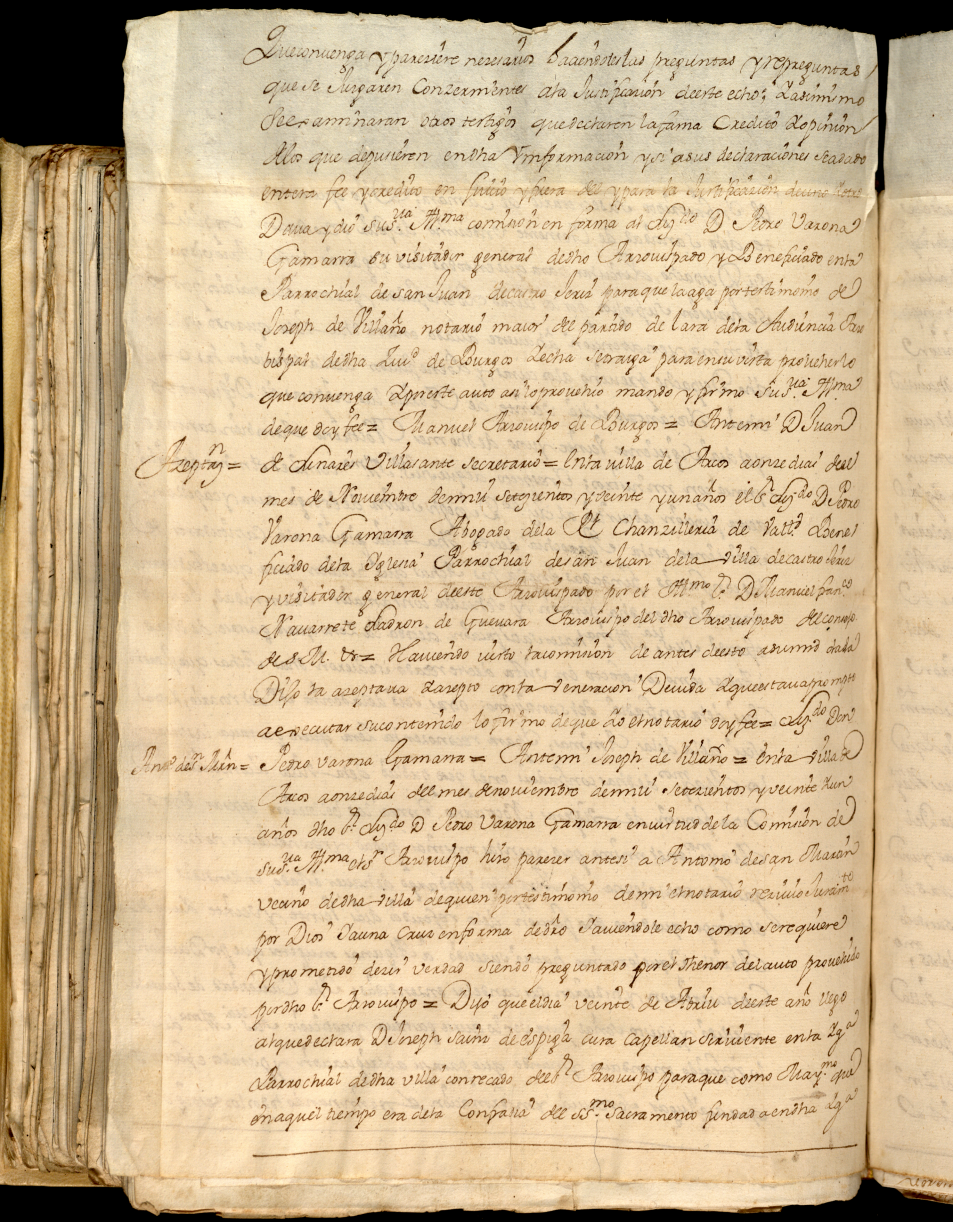 Que convenga y pareziere nezesario haziendoles las preguntas y repreguntas
que se Juzgaren Conzernientes ala Justificazion deeste echo; Y asimismo
Se examinaran otros testigos que declaren la fama Credito y opinion
delos que depusieren en dha Ynformazion y si a sus declaraziones se a dado
entera fee y credito en Juicio y fuera del y para la Justificazion de
Daua y dio Sus.ria Yll.ma comision en forma al Liz.do D Pedro Varona
Gamarra su visitador general de dho Arzouispado y Beneficiado en la
Parrochial de san Juan de castro Jeriz para que la aga por testimonio de
Joseph de Villaño notario maior del partido de lara dela Audiencia Arzo
bispal de dha Ziu.d de Burgos y echa se traiga para en su vista prouieherlo
que convenga y por este auto asi lo prouehio mando y firmo Sus.ria Yll.ma
de que doy fee = Manuel Arzouispo de Burgos = Antemi D Juan
Azeptaz.n = de Linares Villasante secretario = En la villa de Arcos a onze dias del
mes de Noviembre de mill setezientos y veinte y un años el S.r Liz.do D Pedro
Varona Gamarra Abogado dela R.l Chanzilleria de Vall.d y Bene
ficiado dela Yglesia Parrochial de san Juan dela villa de castro Jeriz
y visitador general deeste Arzouispado por el Yll.mo S.r D Manuel fran.co
Navarrete Ladron de Guevara Arzouispo del dho Arzouispado del consejo
de S M. &.a = Hauiendo visto la comision de antes deesto a su mrd dada
Dijo la azeptaua y azepto con la veneracion Devida y que estaua prompto
a executar su contenido lo firmo de que yo el notario doy fee = Liz.do Don
An.o de S.n Mrn = Pedro varona Gamarra = Antemi Joseph de Villaño = En la villa de
Arcos a onze dias del mes de noviembre de mill setezientos y veinte y un
años dho S.r Liz.do D Pedro Varona Gamarra en virtud de la Comision de
sus.ria Yll.ma el S.r Arzouispo hizo parezer ante si a Antonio de san Martin
vezino de dha villa de quien por testimonio de mi el notario reziuio Juram.to
por Dios y a una Cruz en forma de dro y auiendole echo como se requiere
y prometido dezir verdad siendo preguntado por el thenor del auto prouehido
por dho S.r Arzouispo = Dijo que el dia veinte de Abril deeste año llego
al que declara D Joseph Sainz de Espiga cura capellan seruiente en la Yg.a
Parrochial de dha villa con recado del S.r Arzouispo para que como May.mo que
en aquel tiempo era dela Confadia del SS.mo Sacramento fundada en dha Yg.a